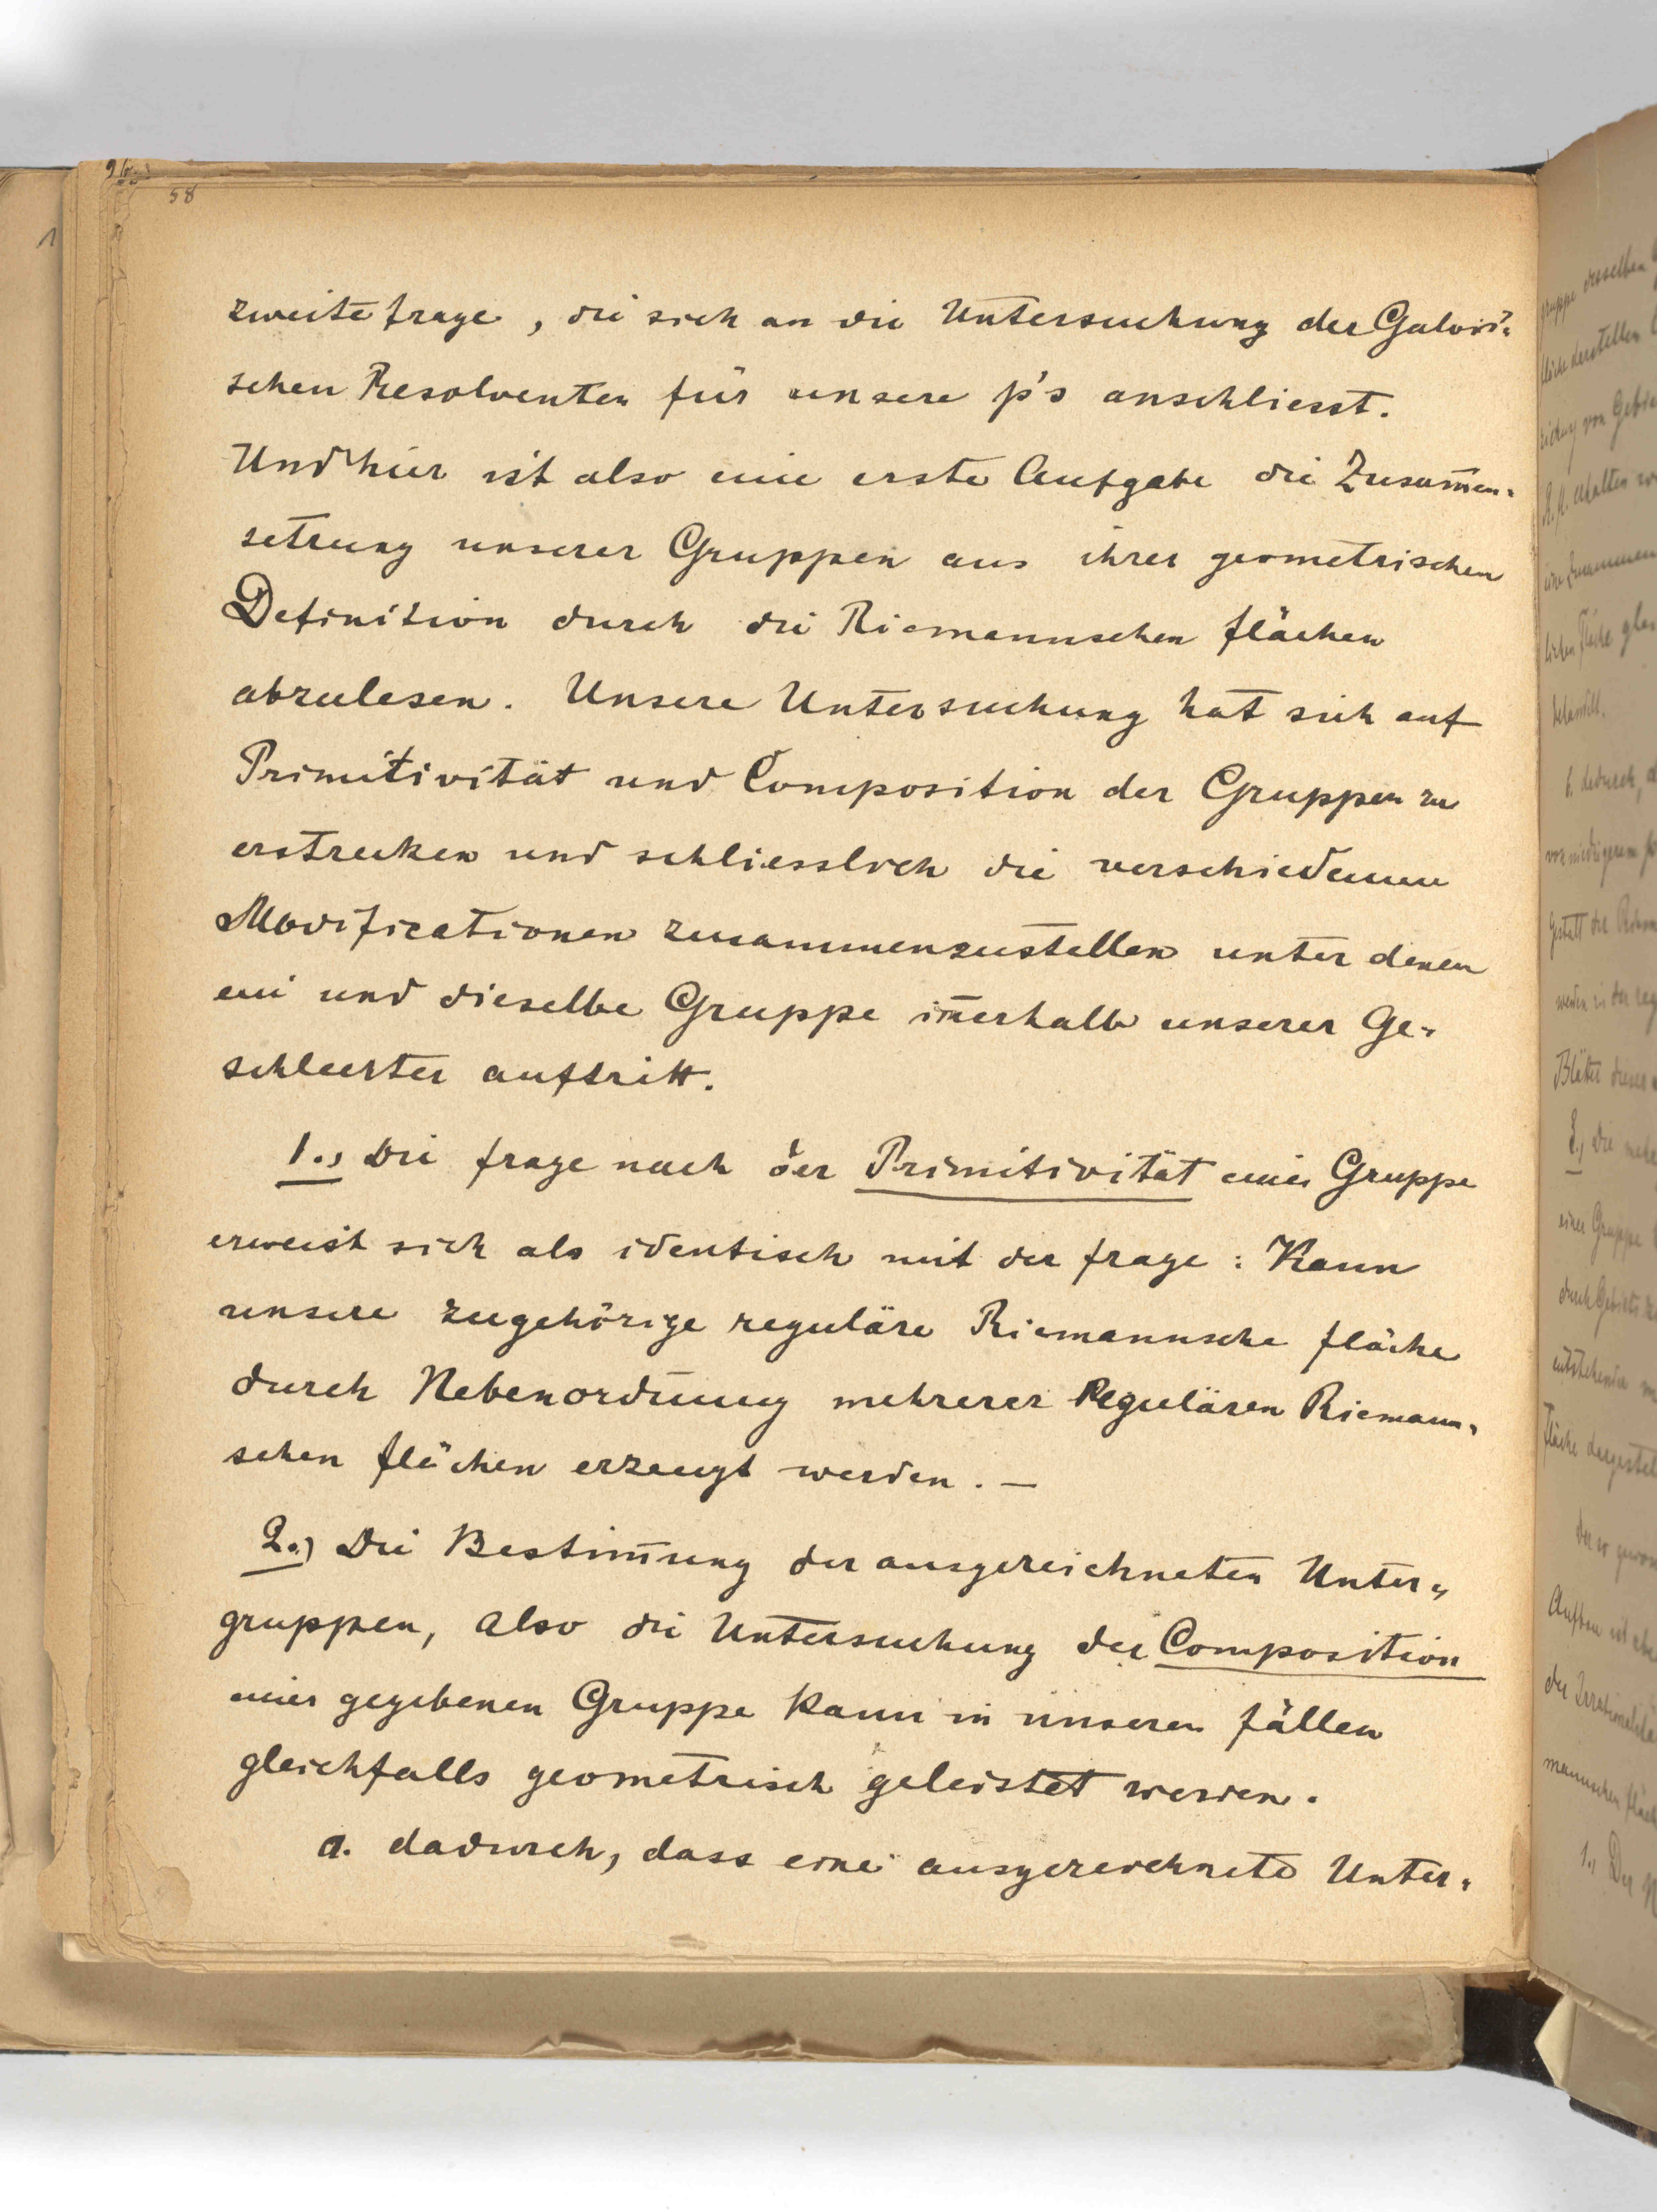 58
zweite frage, die sich an die Untersuchung der Galois'-
schen Resolventen für unsere p's anschliesst.
Und hier ist also eine erste Aufgabe die Zusam̅en-
setzung unserer Gruppen aus ihrer geometrischen
Definition durch die Riemannschen flächen
abzulesen. Unsere Untersuchung hat sich auf
Primitivität und Composition der Gruppen zu
erstrecken und schliesslich die verschiedenen
Modificationen zusammenzustellen unter denen
ein und dieselbe Gruppe in̅erhalb unserer Ge-
schlechter auftritt.
1., Die frage nach der Primitivität einer Gruppe
erweist sich als identisch mit der frage: Kann
unsere zugehörige reguläre Riemannsche fläche
durch Nebenordnung mehrerer Regulären Riemann-
schen flächen erzeugt werden. —
2.) Die Bestim̅ung der ausgezeichneten Unter-
gruppen, also die Untersuchung der Composition
einer gegebenen Gruppe kann in unseren fällen
gleichfalls geometrisch geleistet werden.
a. dadurch, dass eine ausgezeichnete Unter-